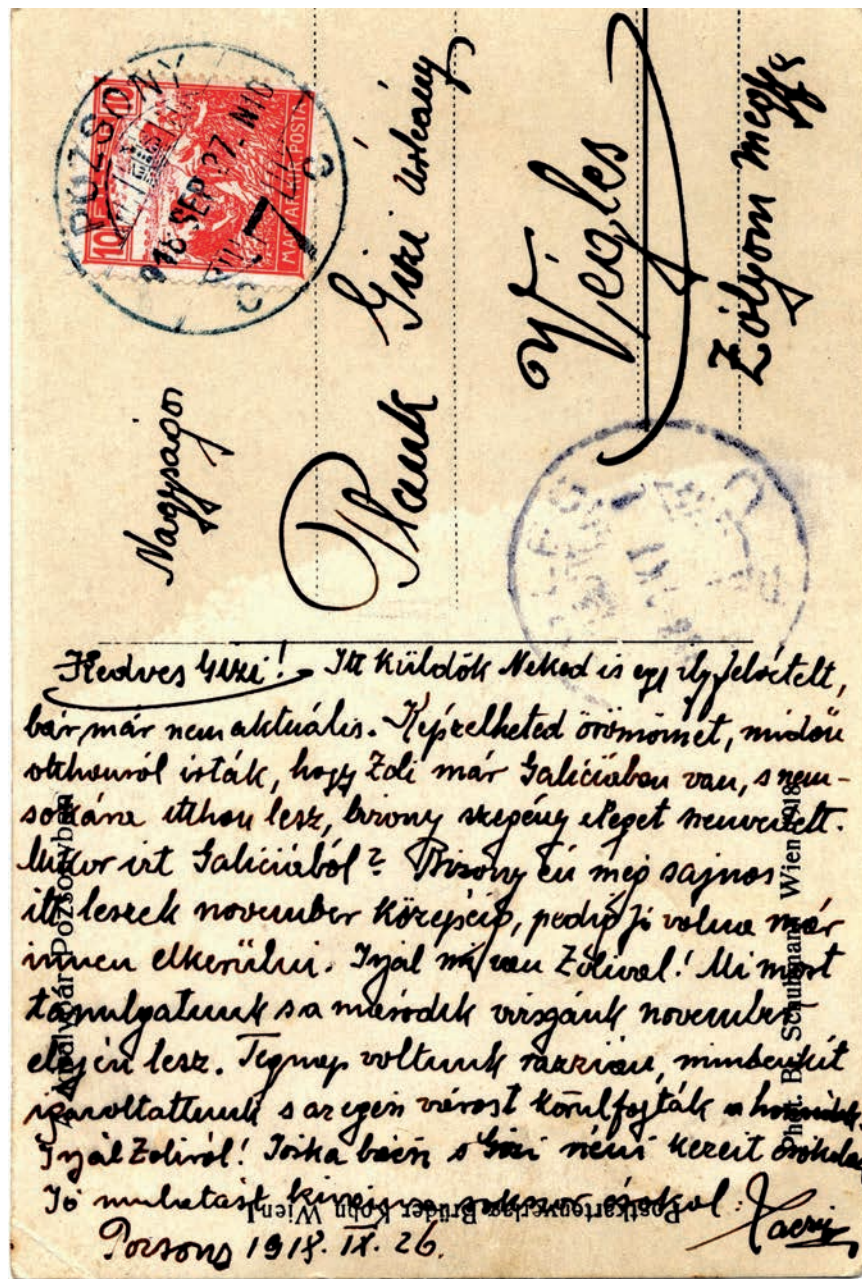 POZSONY
918 SEP 27. N10
10 FILLÉR 10
MAGYAR KIR. POSTA
Nagyságos
Plank Gizi úrleány
Végles
Zólyom megye
Kedves Gizi! Itt küldök Neked is egy ily felvételt,
bár már nem aktuális. Képzelheted örömömet, midőn
otthonról írták, hogy Zoli már Galíciában van, s nem-
sokára itthon lesz, bizony szegény eleget szenvedett.
Mikor írt Galíciából? Bizony én még sajnos
itt leszek november közepéig, pedig jó volna már
innen elkerülni. Irjál mi van Zolival! Mi most
tanulgatunk s a második vizsgánk november
elején lesz. Tegnap voltunk razzián, mindenkit
igazoltattunk s az egész várost körülfogták a honvédek.
Irjál Zoliról! Joska bácsi s Gizi néni kezeit csókolom
Jó mulatást kívánva sokszor csókol:
Pozsony 1918. IX. 26.
A királypár Pozsonyban
Phot. R. Schuhmann Wien 1918
Postkartenverlag Brüder Kohn Wien I